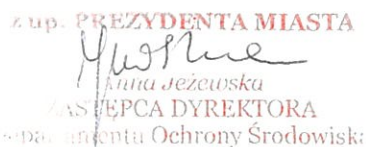 z up. PREZYDENTA MIASTA
Anna Jeżewska
ZASTĘPCA DYREKTORA
Ochrony Środowiska